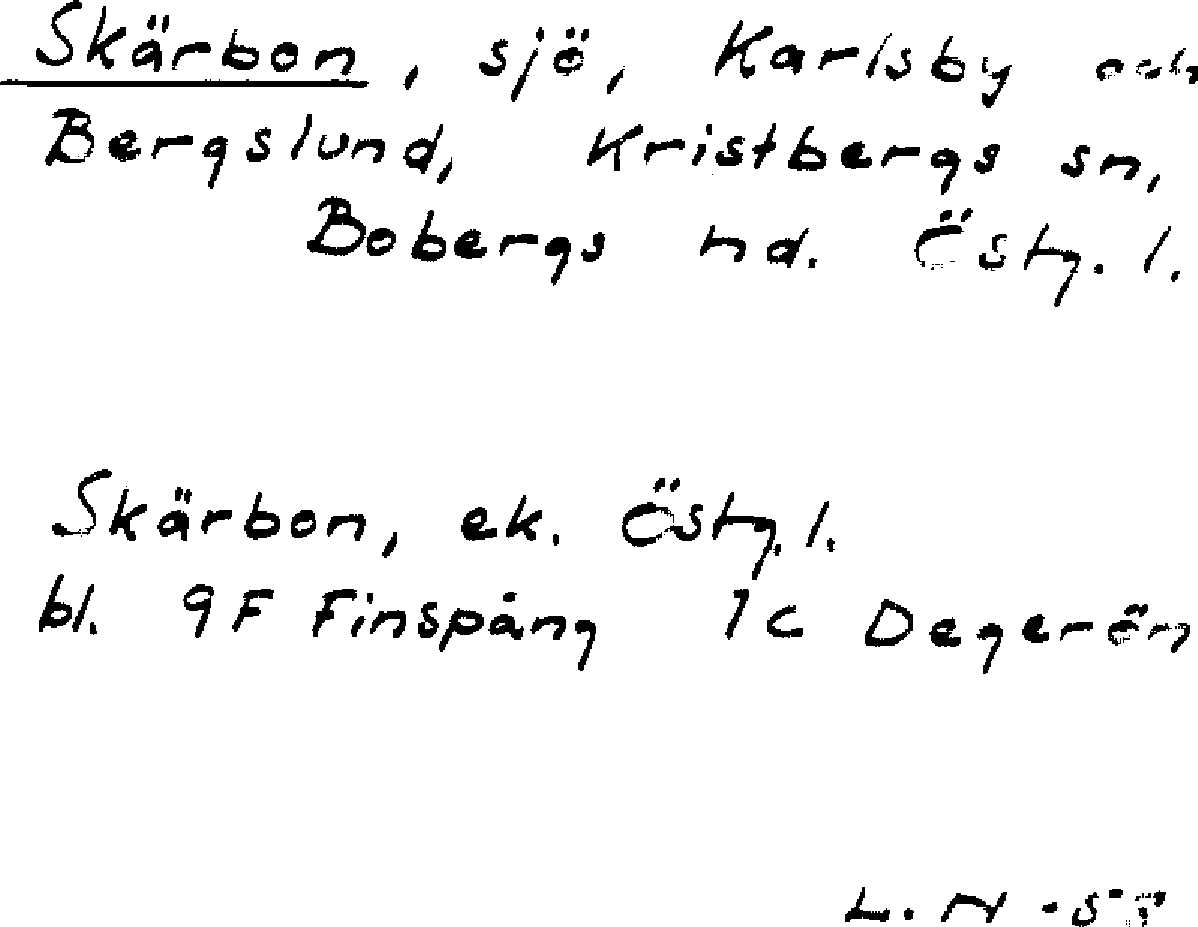 Skärbon, sjö, Karlsby och
Bergslund, Kristbergs sn,
Bobergs hd. Östg. l.
Skärbon, ek. Östg. l.
bl. 9F Finspång 1c Degerön
L. N